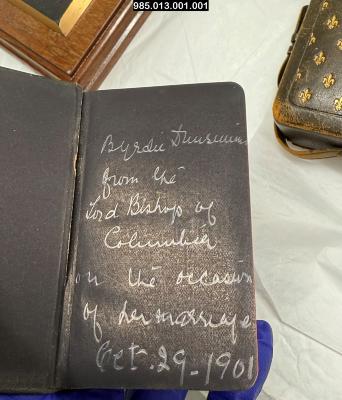 985.013.001.001
Byrdie Dunsmuir
from the
Lord Bishop of
Columbia
on the occasion
of her marriage
Oct. 29 - 1901